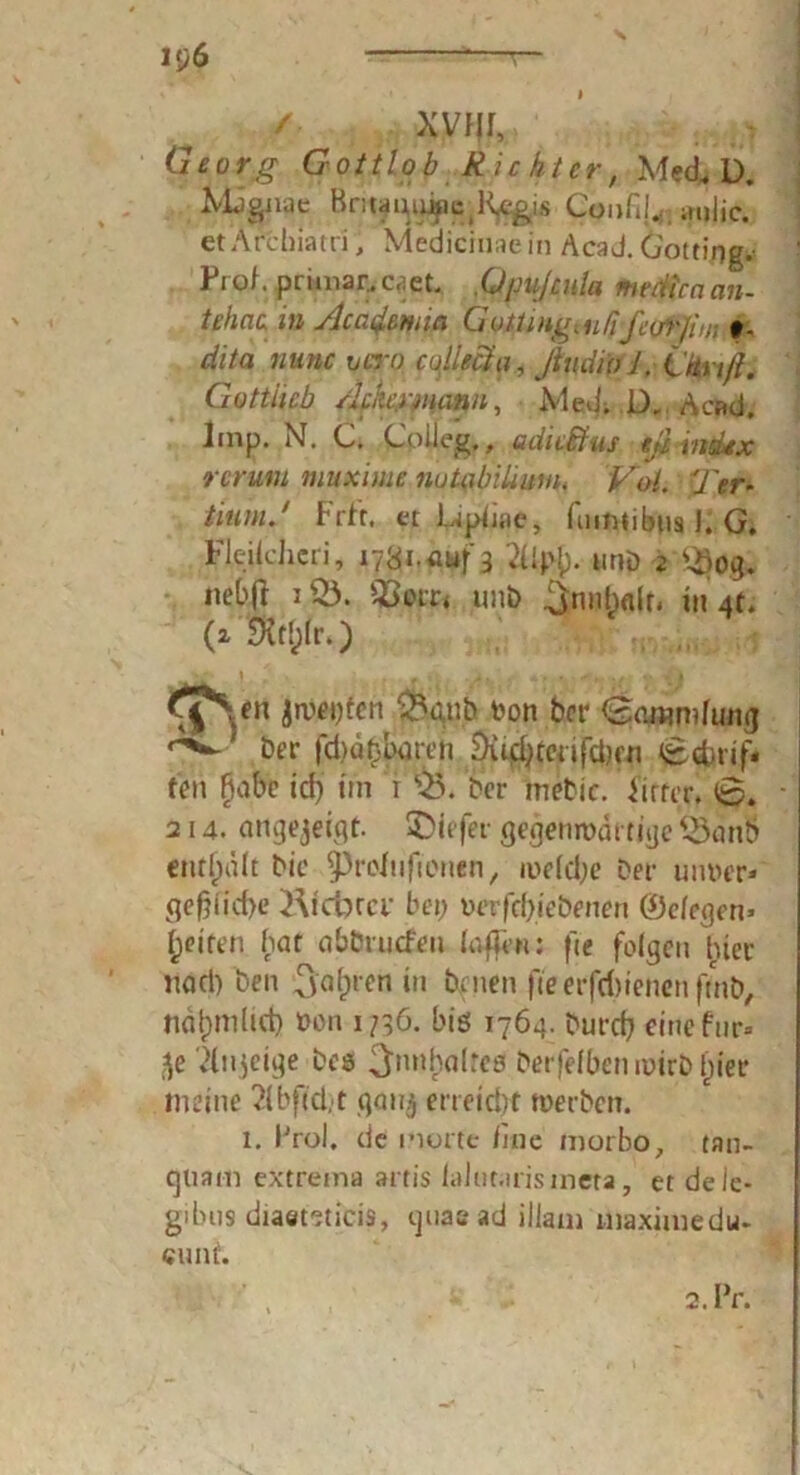 196
XVIII.
Georg Gottlob Richter, Med. D.
Magnae Britanniae Regis Consil. aulic.
et Archiatri, Medicinae in Acad. Gotting.
Prof. primar. caet. Opuscula medica an-
tehac in Academia Gottingensi seorsim e-
dita nunc vero collecta, studio J. Christ.
Gottlieb Ackermann, Med. D. Acad.
Imp. N. C. Colleg., adiectus est index
rerum maxime notabilium. Vol. Ter-
tium. Frft. et Lipsiae, sumtibus J. G.
Fleischeri, 1781. auf 3 Alph. und 2 Bog.
nebst 1 B. Vorr. und Innhalt. in 4t.
(2 Rthlr.)
Den zweyten Band von der Sammlung
der schätzbaren Richterischen Schrif-
ten habe ich im 1 B. der medic. Litter. S.
214. angezeigt. Dieser gegenwärtige Band
enthält die Prolusionen, welche der unver-
geßliche Richter bey verschiedenen Gelegen-
heiten hat abdrucken lassen: sie folgen hier
nach den Jahren in denen sie erschienen sind,
nähmlich von 1736. bis 1764. durch eine kur-
ze Anzeige des Innhaltes derselben wird hier
meine Absicht ganz erreicht werden.
1. Prol. de morte sine morbo, tan-
quam extrema artis salutaris meta, et de le-
gibus diaeteticis, quae ad illam maxime du-
cunt.
2. Pr.